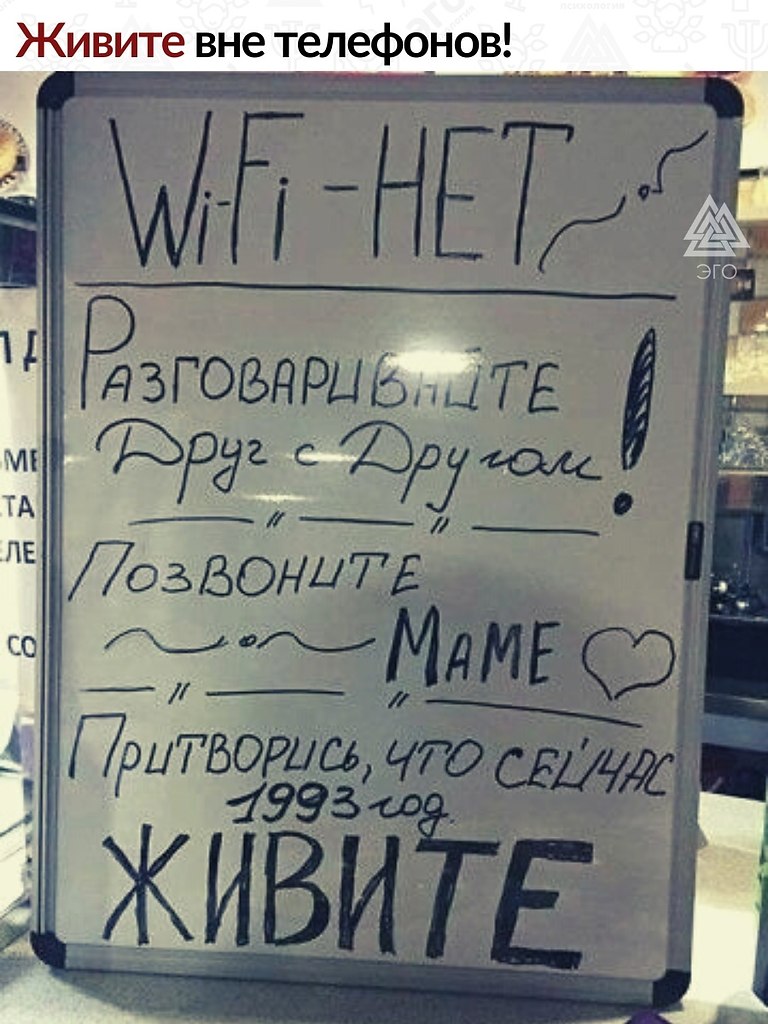 Живите вне телефонов!
Wi-Fi - НЕТ
ЭГО
Разговаривайте !
Друг с Другом
Позвоните
Маме
Притворись, что сейчас
1993 год.
ЖИВИТЕ